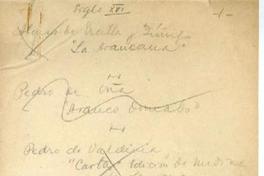 Siglo XVI
-1-
Alonso de Ercilla y Zúñiga
"La Araucana"
Pedro de Oña
"Arauco Domado"
Pedro de Valdivia
"Cartas" edición de Medina